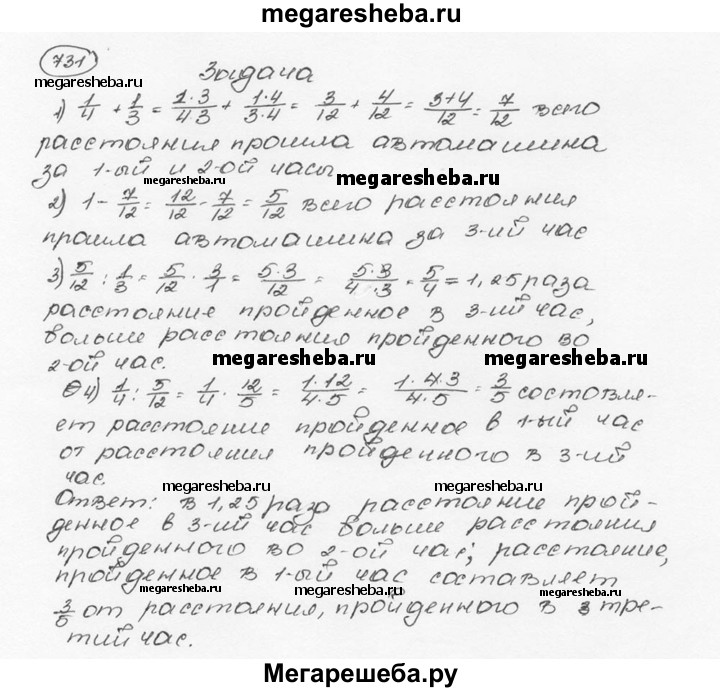 megaresheba.ru
731
megaresheba.ru
Задача
1) 1/4 + 1/3 = 1·3/4·3 + 1·4/3·4 = 3/12 + 4/12 = 3+4/12 = 7/12 всего
расстояния прошла автомашина
за 1-ый и 2-ой часы
megaresheba.ru megaresheba.ru
2) 1 - 7/12 = 12/12 - 7/12 = 5/12 всего расстояния
прошла автомашина за 3-ий час
3) 5/12 : 1/3 = 5/12 · 3/1 = 5·3/12 = 5·3/4·3 = 5/4 = 1,25 раза
расстояние пройденное в 3-ий час,
больше расстояния пройденного во
2-ой час.
megaresheba.ru megaresheba.ru
4) 1/4 : 5/12 = 1/4 · 12/5 = 1·12/4·5 = 1·4·3/4·5 = 3/5 составля-
ет расстояние пройденное в 1-ый час
от расстояния пройденного в 3-ий
час.
megaresheba.ru megaresheba.ru
Ответ: в 1,25 раза расстояние прой-
денное в 3-ий час больше расстояния
пройденного во 2-ой час; расстояние,
пройденное в 1-ый час составляет
megaresheba.ru megaresheba.ru
3/5 от расстояния, пройденного в тре-
тий час.
Мегарешеба.ру